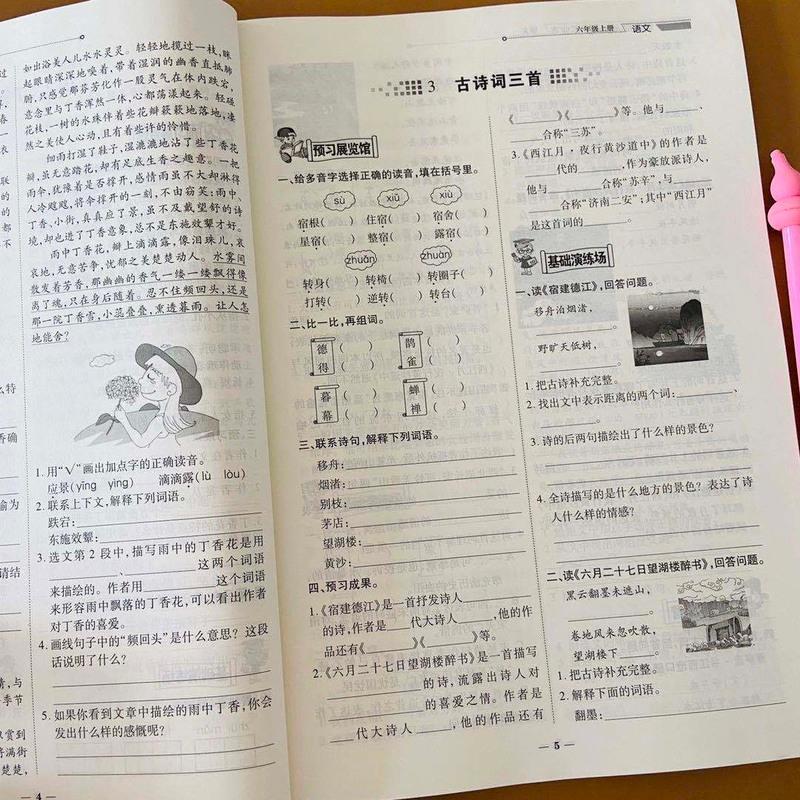 如出浴美人儿水水灵灵。轻轻地揽过一枝,眯
起眼睛深深地唤着,带着湿润的幽香直抵肺
腑,只感觉那芬芳化作一股灵气在体内跌宕,
意念里与丁香浑然一体,心都荡漾起来。轻碰
花枝,一树的水珠伴着些花瓣簌簌地落地,凄
然之美使人心动,且有着些许的怜惜。
细雨打湿了鞋子,湿漉漉地沾了些丁香花
瓣,虽无意踏花,却有足底生香之趣意。一把
雨伞,犹豫着是否撑开,感情雨虽不大却淋得
人冷飕飕,将伞撑开的一刻,不由窃笑:雨中、
丁香、小街,真真应了景,虽不及戴望舒的诗
境,却也进了丁香意象,总不是东施效颦才好。
雨中丁香花,瓣上滴滴露,像泪珠儿,哀
哀地,无意苦争,忧郁之美楚楚动人。水雾间
散发着芳香,那幽幽的香气一缕一缕飘得像
离了魂,只在身后随着。忍不住频回头,还是
那一院丁香雪,小蕊叠叠,重透暮雨。让人怎
地能舍?
1. 用“√”画出加点字的正确读音。
应景(yīng yìng) 滴滴露(lù lòu)
2. 联系上下文,解释下列词语。
跌宕:
东施效颦:
3. 选文第 2 段中,描写雨中的丁香花是用
、 这两个词语
来描绘的。作者用 这个词语
来形容雨中飘落的丁香花,可以看出作者
对丁香的喜爱。
4. 画线句子中的“频回头”是什么意思? 这段
话说明了什么?
5. 如果你看到文章中描绘的雨中丁香,你会
发出什么样的感慨呢?
— 4 —
六年级上册 语文
3 古诗词三首
预习展览馆
一、给多音字选择正确的读音,填在括号里。
sù xiǔ xiù
宿根( ) 住宿( ) 宿舍( )
星宿( ) 整宿( ) 露宿( )
zhuǎn zhuàn
转身( ) 转椅( ) 转圈子( )
打转( ) 逆转( ) 转台( )
二、比一比,再组词。
德( ) 鹊( )
得( ) 雀( )
暮( ) 蝉( )
幕( ) 禅( )
三、联系诗句,解释下列词语。
移舟:
烟渚:
别枝:
茅店:
望湖楼:
黄沙:
四、预习成果。
1.《宿建德江》是一首抒发诗人
的诗,作者是 代大诗人 ,他的作
品还有《 》《 》等。
2.《六月二十七日望湖楼醉书》是一首描写
的诗,流露出诗人对
的喜爱之情。作者是
代大诗人 ,他的作品还有
《 》《 》等。他与 、
合称“三苏”。
3.《西江月·夜行黄沙道中》的作者是
代的 ,作为豪放派诗人,
他与 合称“苏辛”,与
合称“济南二安”;其中“西江月”
是这首词的 。
基础演练场
一、读《宿建德江》,回答问题。
移舟泊烟渚,
。
野旷天低树,
。
1. 把古诗补充完整。
2. 找出文中表示距离的两个词: 、
。
3. 诗的后两句描绘出了什么样的景色?
4. 全诗描写的是什么地方的景色? 表达了诗
人什么样的情感?
二、读《六月二十七日望湖楼醉书》,回答问题。
黑云翻墨未遮山,
。
卷地风来忽吹散,
望湖楼下 。
1. 把古诗补充完整。
2. 解释下面的词语。
翻墨:
— 5 —